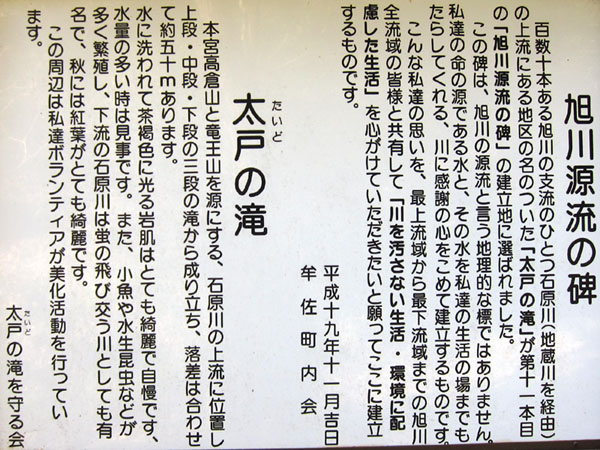 旭川源流の碑
百数十本ある旭川の支流のひとつ石原川（地蔵川を経由）
の上流にある地区の名のついた「太戸の滝」が第十一本目
の「旭川源流の碑」の建立地に選ばれました。
この碑は、旭川の源流と言う地理的な標ではありません。
私達の命の源である水と、その水を私達の生活の場までも
たらしてくれる、川に感謝の心をこめて建立するものです。
こんな私達の思いを、最上流域から最下流域までの旭川
全流域の皆様と共有して「川を汚さない生活・環境に配
慮した生活」を心がけていただきたいと願ってここに建立
するものです。
平成十九年十一月吉日
牟佐町内会
たいど
太戸の滝
本宮高倉山と竜王山を源にする、石原川の上流に位置し
上段・中段・下段の三段の滝から成り立ち、落差は合わせ
て約五十mあります。
水に洗われて茶褐色に光る岩肌はとても綺麗で自慢です、
水量の多い時は見事です。また、小魚や水生昆虫などが
多く繁殖し、下流の石原川は蛍の飛び交う川としても有
名で、秋には紅葉がとても綺麗です。
この周辺は私達ボランティアが美化活動を行ってい
ます。
たいど
太戸の滝を守る会